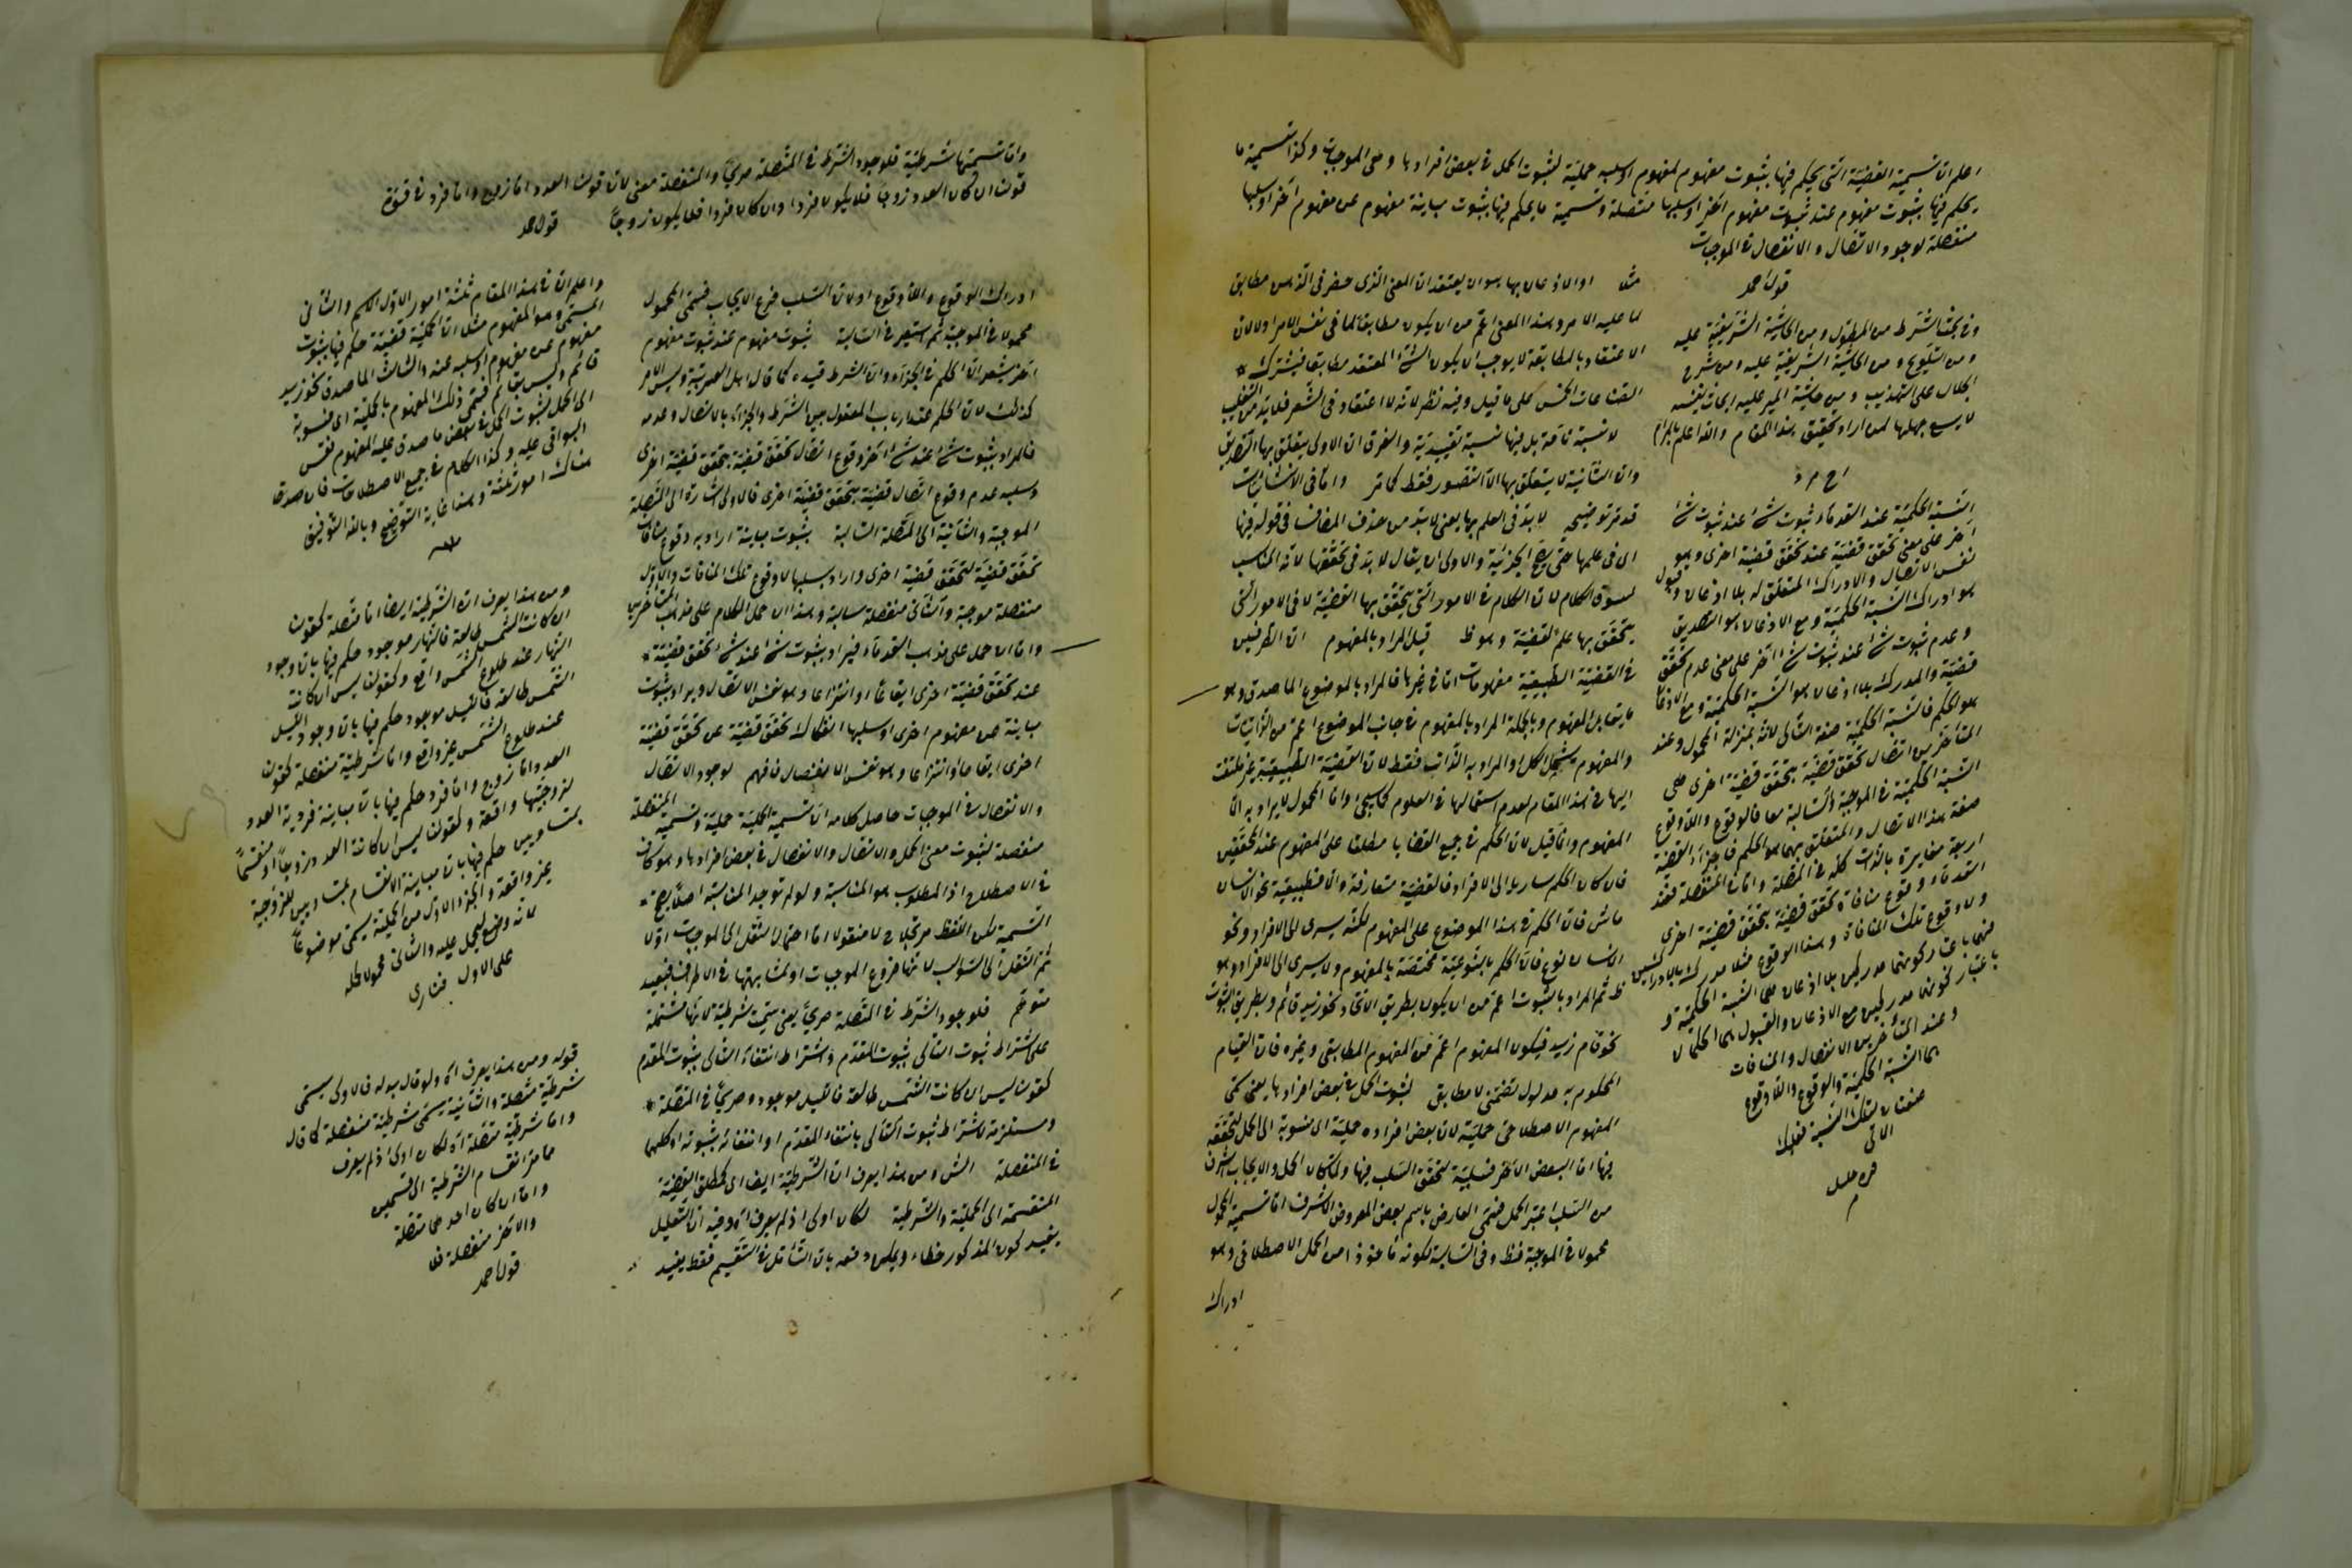 اعلم ان تسمية القضية التى يحكم فيها بثبوت مفهوم لمفهوم او سلبه حملية لثبوت الحمل فى بعض افرادها وهى الموجبات وكذا تسمية ما
يحكم فيها بثبوت مفهوم عند ثبوت مفهوم آخر او سلبها متصلة وتسمية ما يحكم فيها بثبوت مباينة مفهوم عن مفهوم آخر او سلبها
منفصلة لوجود الاتصال والانفصال فى الموجبات
قول احمد
وفى بحث الشرط من المطول ومن الحاشية الشريفية عليه
ومن التلويح ومن الحاشية الشريفية عليه ومن شرح
الجلال على التهذيب ومن حاشية المير عليه ابحاث نفيسه
لا يسع جهلها لمن اراد تحقيق هذا المقام والله اعلم بالمرام
النسبة الحكمية عند القدماء ثبوت شئ عند ثبوت شئ
آخر على معنى تحقق قضية عند تحقق قضية اخرى وهو
نفس الاتصال والادراك المتعلق له بلا اذعان وقبول
هو ادراك النسبة الحكمية ومع الاذعان هو التصديق
وعدم ثبوت شئ عند ثبوت شئ آخر على معنى عدم تحقق
قضية والمدرك بلا اذعان هو النسبة الحكمية ومع الاذعان
هو الحكم فالنسبة الحكمية صفة التالى لانه بمنزلة المحمول وعند
المتأخرين اتصال تحقق قضية بتحقق قضية اخرى هى
النسبة الحكمية فى الموجبة والسالبة معا فالوقوع واللاوقوع
صفة هذا الاتصال والمتعلق بهما هو الحكم فاجزاء القضية
اربعة مغايرة بالذات كله فى المتصلة واما فى المنفصلة فعند
القدماء وقوع منافاة تحقق قضية بتحقق قضية اخرى
ولا وقوع تلك المنافاة وهذا الوقوع مثلا مدرك بالادراكين
فهما باعتبار كونهما مدركين بلا اذعان هى النسبة الحكمية و
باعتبار كونهما مدركين مع الاذعان والقبول هما الحكمان
وعند المتأخرين الانفصال والمنافات
هما النسبة الحكمية والوقوع واللاوقوع
صفتان لتلك النسبة
قره خليل
م
مثلا او الاذعان بها هو ان يعتقد ان المعنى الذى حضر فى الذهن مطابق
لما عليه الامر وهذا المعنى اعم من ان يكون مطابقا لما فى نفس الامر او لا لان
الاعتقاد بالمطابقة لا يوجب ان يكون الشئ المعتقد مطابقا فيشترك
الصناعات الخمس على ما قيل وفيه نظر لانه لا اعتقاد فى الشعر فلا بد من التغليب
لا نسبة تامة بل فيها نسبة تقييدية والفرق ان الاولى يتعلق بها التصديق
وان الثانية لا يتعلق بها الا التصور فقط كما مر واما فى الانشائيات
قد مر توضيحه لا بد فى العلم بها يعنى لا بد من حذف المضاف فى قوله فيها
اى فى علمها حتى يصح الجزئية والاولى ان يقال لا بد فى تحققها لانه المناسب
لسوق الكلام لان الكلام فى الامور التى يتحقق بها القضية لا فى الامور التى
يتحقق بها علم القضية وهو ظ قيل المراد بالمفهوم ان الطرفين
فى القضية الطبيعية مفهومات اما فى غيرها فالمراد بالموضوع الماصدق وهو
ما يقابل المفهوم وبالجملة المراد بالمفهوم فى جانب الموضوع اعم من الذاتيات
والمفهوم يشمل الكل او المراد به الذات فقط لان القضية الطبيعية غير ملتفت
اليها فى هذا المقام لعدم استعمالها فى العلوم كما سيجئ واما المحمول لا يراد به الا
المفهوم وانما قيل لان الحكم فى جميع القضايا مطلقا على المفهوم عند المحققين
فان كان الحكم ساريا الى الافراد فالقضية متعارفة والا فطبيعية نحو الانسان
ماش فان الحكم فى هذا الموضوع على المفهوم لكنه يسرى الى الافراد ونحو
الانسان نوع فان الحكم بالنوعية مختصة بالمفهوم ولا يسرى الى الافراد وهو
ظ ثم المراد بالثبوت اعم من ان يكون بطريق الاتحاد نحو زيد قائم وبطريق الثبوت
نحو قام زيد فيكون المفهوم اعم من المفهوم المطابقى وغيره فان القيام
المحكوم به مدلول تضمنى لا مطابق لثبوت الحمل فى بعض افرادها يعنى سمى
المفهوم الاصطلاحى حملية لان بعض افراده حملية اى منسوبة الى الحمل لتحققه
فيها اما البعض الآخر فسلبية لتحقق السلب فيها ولما كان الحمل والايجاب اشرف
من السلب اعتبر الحمل فسمى العارض باسم بعض المعروض الاشرف اما تسمية المحمول
محمولا فى الموجبة فظ وفى السالبة لكونه مأخوذا من الحمل الاصطلاحى وهو
ادراك
واما تسميتها شرطية فلوجود الشرط فى المتصلة صريحا والمنفصلة معنى لان قولنا العدد اما زوج واما فرد فى قوة
قولنا ان كان العدد زوجا فلا يكون فردا وان كان فردا فلا يكون زوجا قول احمد
ادراك الوقوع واللاوقوع او لان السلب فرع الايجاب فسمى المحمول
محمولا فى الموجبة ثم استعير فى السالبة بثبوت مفهوم عند ثبوت مفهوم
آخر يشعر ان الحكم فى الجزاء وان الشرط قيده كما قال اهل العربية وليس الامر
كذلك لان الحكم عند ارباب المعقول بين الشرط والجزاء بالاتصال وعدمه
فالمراد بثبوت شئ عند شئ آخر وقوع اتصال تحقق قضية بتحقق قضية اخرى
وسلبه عدم وقوع اتصال قضية بتحقق قضية اخرى فالاولى اشارة الى المتصلة
الموجبة والثانية الى المتصلة السالبة بثبوت مباينة اراد به وقوع منافات
تحقق قضية لتحقق قضية اخرى واراد بسلبها لا وقوع تلك المنافات والاول
منفصلة موجبة والثانى منفصلة سالبة وهذا ان حمل الكلام على مذهب المتأخرين
واما ان حمل على مذهب القدماء فيراد بثبوت شئ عند شئ تحقق قضية
عند تحقق قضية اخرى ايقاعا او انتزاعا وهو نفس الاتصال ويراد بثبوت
مباينة عن مفهوم اخرى او سلبها انفكاك تحقق قضية عن تحقق قضية
اخرى ايقاعا وانتزاعا وهو نفس الانفصال فافهم لوجود الاتصال
والانفصال فى الموجبات حاصل كلامه ان تسمية الحملية حملية وتسمية المتصلة
منفصلة لثبوت معنى الحمل والاتصال والانفصال فى بعض افرادها وهو كاف
فى الاصطلاح اذ المطلوب هو المناسبة ولو لم توجد المناسبة اصلا يصح
التسمية لكن اللفظ مرتجلا لا منقولا اما احتمال النقل الى الموجبات اولا
ثم النقل الى السوالب لانها فروع الموجبات او لمشابهتها فى الاطراف فبعيد
متوهم فلوجود الشرط فى المتصلة صريحا يعنى سميت شرطية لانها مشتملة
على اشتراط ثبوت التالى بثبوت المقدم واشتراط انتفاء التالى بثبوت المقدم
كقولنا ليس ان كانت الشمس طالعة فالليل موجود وصريحا فى المتصلة
ومستلزمة لاشتراط ثبوت التالى بانتفاء المقدم او انتفائه بثبوته او كليهما
فى المنفصلة الش ومن هذا يعرف ان الشرطية ايضا اى كمطلق القضية
المنقسمة الى الحملية والشرطية لكان اولى اذ لم يعرف اه وفيه ان التعليل
يفيد كون المذكور خطاء ويمكن دفعه بان التأمل فى التقسيم فقط يفيد
واعلم ان فى هذا المقام ثلثة امور الاول الحكم والثانى
المسمى وهو المفهوم مثلا ان الحملية قضية حكم فيها بثبوت
مفهوم عن مفهوم او سلبه عنه والثالث الماصدق نحو زيد
قائم وليس بقائم فسمى ذلك المفهوم بالحملية اى منسوبة
الى الحمل لثبوت الحمل فى بعض ما صدق عليه المفهوم فقس
البواقى عليه وكذا الكلام فى جميع الاصطلاحات فان صدق
هناك امور ثلثة وهذا غاية التوضيح وبالله التوفيق
ومن هذا يعرف ان الشرطية ايضا اما متصلة كقولنا
ان كانت الشمس طالعة فالنهار موجود حكم فيها بان وجود
النهار عند طلوع الشمس واقع وكقولنا ليس ان كانت
الشمس طالعة فالليل موجود حكم فيها بان وجود الليل
عند طلوع الشمس غير واقع واما شرطية منفصلة كقولنا
العدد اما زوج واما فرد حكم فيها بان مباينة فردية العدد
لزوجيتها واقعة وكقولنا ليس ان كانت العدد زوجا او منقسما
بمتساويين حكم فيها بان مباينة الانقسام بمتساويين للزوجية
غير واقعة والجزء الاول من الحملية يسمى موضوعا
لانه وضع ليحمل عليه والثانى محمولا لحمله
على الاول فنارى
قوله ومن هذا يعرف اه ولو قال بدله فالاولى يسمى
شرطية متصلة والثانية يسمى شرطية منفصلة كما قال
واما شرطية متصلة اه لكان اولى اذ لم يعرف
مما مر انقسام الشرطية الى قسمين
واما ان كان احدهما متصلة
والآخر منفصلة فلا
قول احمد